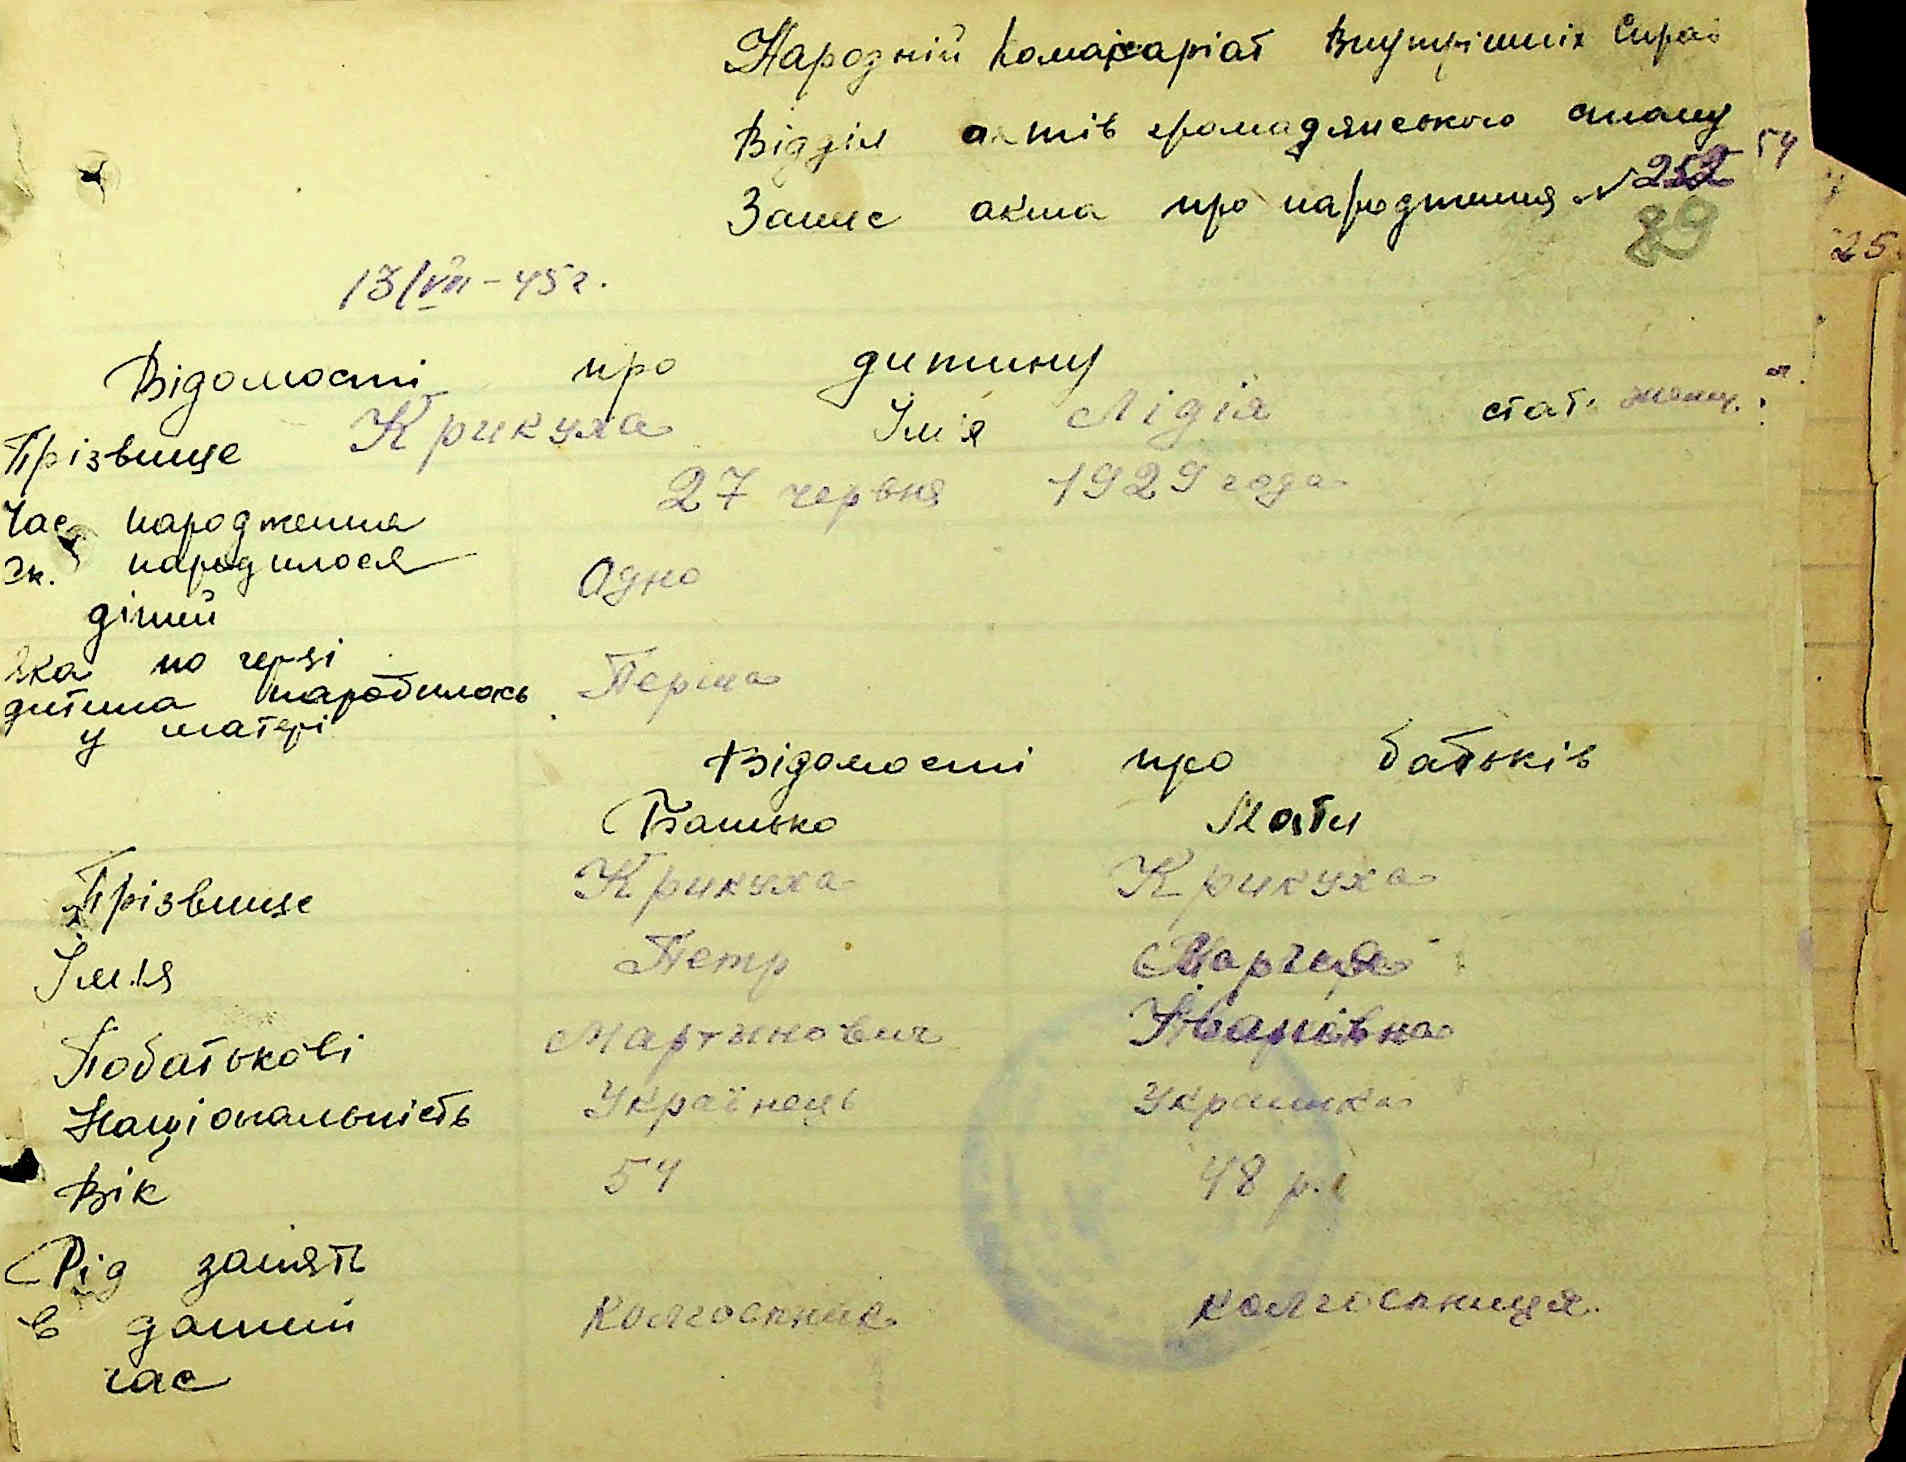 Народній Комаісаріат Внутрішніх Справ
Відділ актів громадянського стану 54
Запис акта про народження № 252
89
25
13/VIII - 45 г.
Відомості про дитину
Прізвище Крикуха Ім'я Лідія стат. женщ.
Час народження 27 червня 1929 года
Ск. народилося дітей Одно
Яка по черзі
дитина народилась Перша
у матері
Відомості про батьків
Батько Мати
Прізвище Крикуха Крикуха
Ім'я Петр
Побатькові Мартынович Іванівна
Національність Українець Украинка
Вік 54 48 р.
Рід занять
в даний Колгоспник колгоспниця.
час